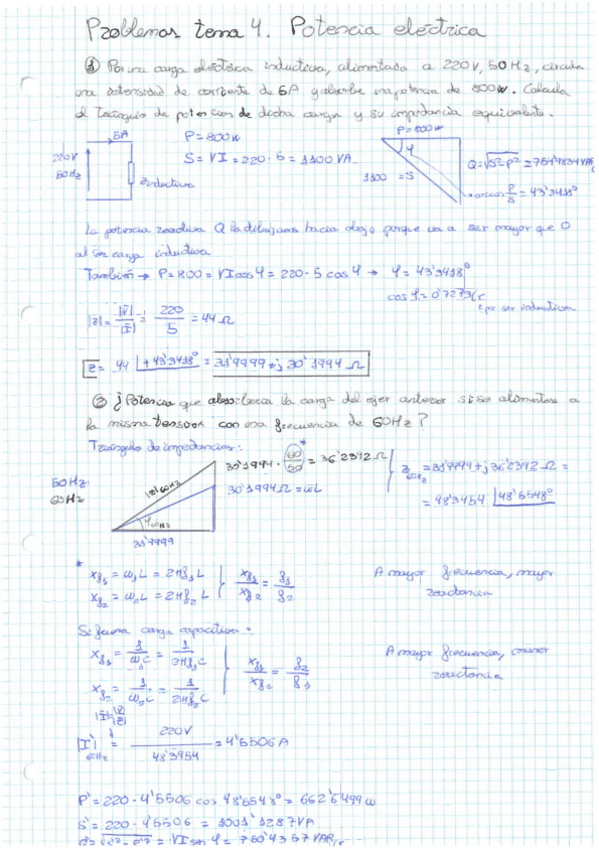 Problemas tema 4. Potencia eléctrica
① Por una carga eléctrica inductiva, alimentada a 220V, 50Hz, circula
una intensidad de corriente de 5A y absorbe una potencia de 800w. Calcula
el triángulo de potencias de dicha carga y su impedancia equivalente.
5A
220V
50Hz
Z inductiva
P=800w
S=VI=220·5=1100VA
P=800w
φ
1100=S
Q=√S²-P²=754'9834VAR
arccos P/S=43'3418º
La potencia reactiva Q la dibujamos hacia abajo porque va a ser mayor que 0
al ser carga inductiva
También → P=800=VIcosφ=220·5 cosφ → φ=43'3418º
cosφ=0'7273
por ser inductiva
|Z|=|V|/|I|=220/5=44Ω
Z=44 |+43'3418º=31'9999+j30'1994 Ω
② ¿Potencia que absorbería la carga del ejer anterior si se alimentara a
la misma tensión con una frecuencia de 60Hz?
Triángulo de impedancias:
50Hz
60Hz
|Z|60Hz
φ60Hz
31'9999
30'1994·(60/50)*=36'2392Ω
30'1994Ω=ωL
Z60Hz=31'9999+j36'2392Ω=
=48'3454 |48'5548º
* Xf1=ω1L=2πf1L
Xf2=ω2L=2πf2L
Xf1/Xf2=f1/f2
A mayor frecuencia, mayor
reactancia
Si fuera carga capacitiva:
Xf1=1/ω1C=1/2πf1C
Xf2=1/ω2C=1/2πf2C
Xf1/Xf2=f2/f1
A mayor frecuencia, menor
reactancia
|I|=|V|/|Z|
|I'|60Hz=220V/48'3454=4'5506A
P'=220·4'5506 cos 48'5548º=662'6499w
S'=220·4'5506=1001'1287VA
Q'=√S'²-P'²=VIsenφ=750'4357VAR